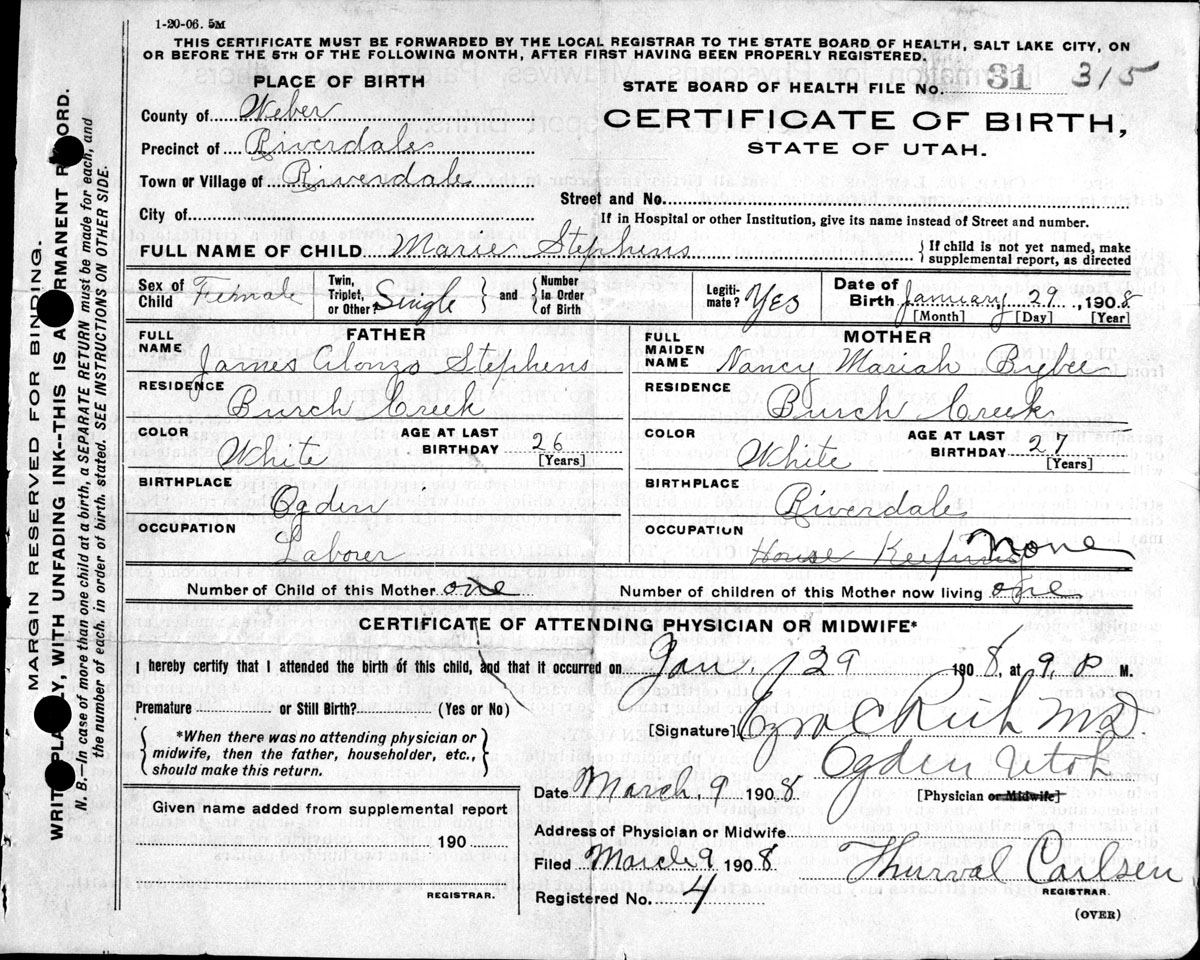 1-20-06. 5M
THIS CERTIFICATE MUST BE FORWARDED BY THE LOCAL REGISTRAR TO THE STATE BOARD OF HEALTH, SALT LAKE CITY, ON
OR BEFORE THE 5TH OF THE FOLLOWING MONTH, AFTER FIRST HAVING BEEN PROPERLY REGISTERED.
PLACE OF BIRTH
STATE BOARD OF HEALTH FILE No. 31 315
County of Weber
CERTIFICATE OF BIRTH,
STATE OF UTAH.
Precinct of Riverdale
Town or Village of Riverdale
Street and No.
City of
If in Hospital or other Institution, give its name instead of Street and number.
FULL NAME OF CHILD Marie Stephens
{If child is not yet named, make
supplemental report, as directed
Sex of Child Female
Twin, Triplet, or Other? Single } and { Number in Order of Birth
Legiti-mate? Yes
Date of Birth January 27, 1908
[Month] [Day] [Year]
FATHER
FULL NAME James Alonzo Stephens
RESIDENCE Burch Creek
COLOR White AGE AT LAST BIRTHDAY 26 [Years]
BIRTHPLACE Ogden
OCCUPATION Laborer
MOTHER
FULL MAIDEN NAME Nancy Mariah Bybee
RESIDENCE Burch Creek
COLOR White AGE AT LAST BIRTHDAY 27 [Years]
BIRTHPLACE Riverdale
OCCUPATION House Keeping None
Number of Child of this Mother one Number of children of this Mother now living one
CERTIFICATE OF ATTENDING PHYSICIAN OR MIDWIFE*
I hereby certify that I attended the birth of this child, and that it occurred on Jan. 29 1908, at 9 P M.
Premature or Still Birth? (Yes or No)
[Signature] Ezra C Rich MD
{ *When there was no attending physician or
midwife, then the father, householder, etc.,
should make this return. }
Ogden Utah
Date March 9 1908 [Physician or Midwife]
Given name added from supplemental report
190
REGISTRAR.
Address of Physician or Midwife
Filed March 9 1908 Thurval Carlsen
REGISTRAR.
Registered No. 4
(OVER)
MARGIN RESERVED FOR BINDING.
PLAINLY, WITH UNFADING INK--THIS IS A PERMANENT RECORD.
N. B.—In case of more than one child at a birth, a SEPARATE RETURN must be made for each, and
the number of each, in order of birth, stated. SEE INSTRUCTIONS ON OTHER SIDE.